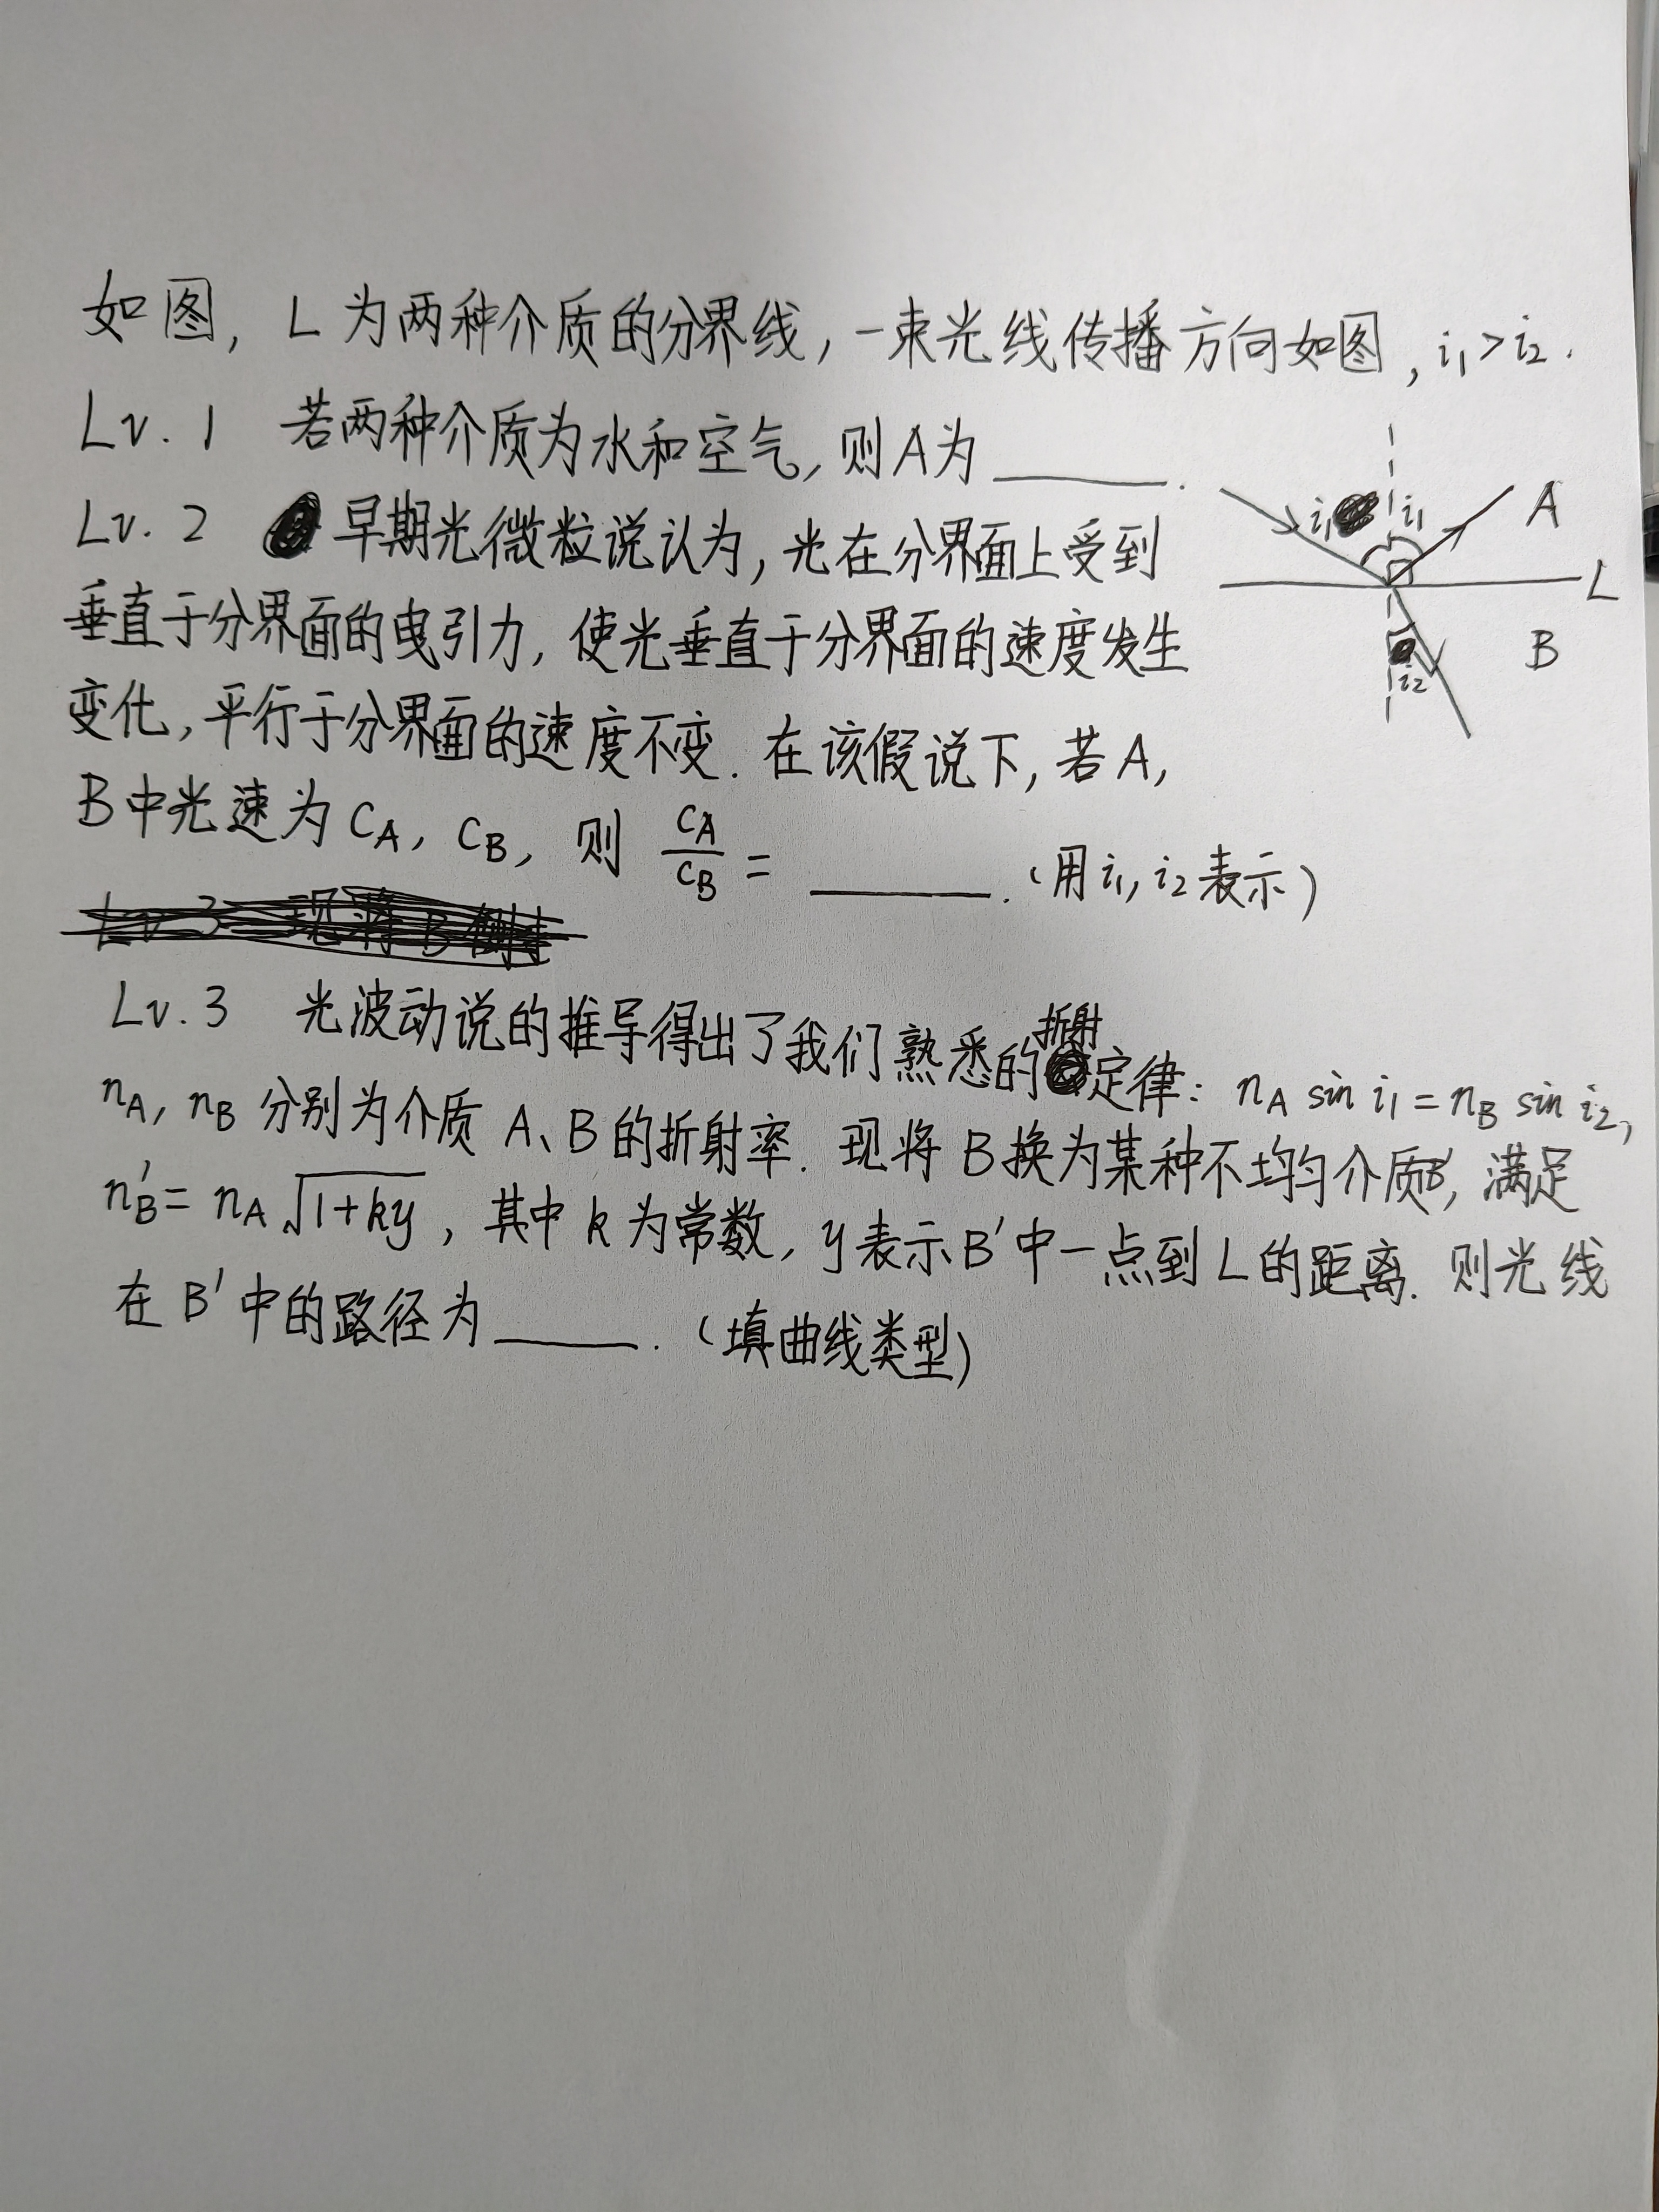 如图，L 为两种介质的分界线，一束光线传播方向如图，i₁>i₂.
Lv. 1 若两种介质为水和空气，则A为______.
Lv. 2 早期光微粒说认为，光在分界面上受到
垂直于分界面的曳引力，使光垂直于分界面的速度发生
变化，平行于分界面的速度不变. 在该假说下，若A，
B中光速为 C_A，C_B，则 C_A/C_B = ______.（用i₁, i₂表示）
Lv 3 现将B侧
Lv. 3 光波动说的推导得出了我们熟悉的折射定律：n_A sin i₁ = n_B sin i₂,
n_A, n_B 分别为介质 A、B的折射率. 现将 B换为某种不均匀介质B′, 满足
n_B′ = n_A √(1+ky)，其中 k 为常数，y表示B′中一点到 L 的距离. 则光线
在 B′中的路径为______.（填曲线类型）
i₁ i₁ A
L
B
i₂